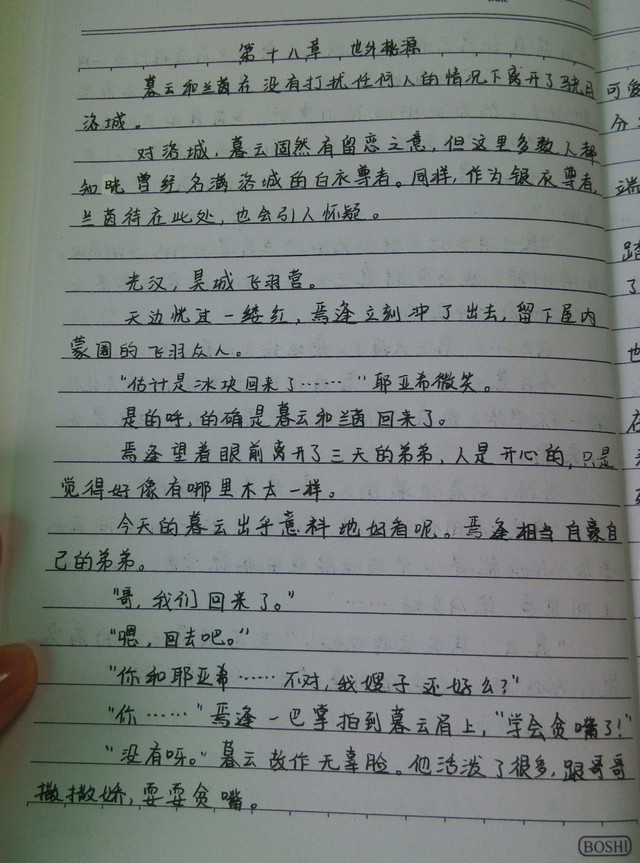 第十八章 世外桃源
暮云和兰茵在没有打扰任何人的情况下离开了
洛城。
对洛城，暮云固然有留恋之意，但这里多数人都
知晓曾经名满洛城的白衣尊者。同样，作为银衣尊者，
兰茵待在此处，也会引人怀疑。
光汉，昊城飞羽营。
天边恍过一缕红，焉逢立刻冲了出去，留下屋内
蒙圈的飞羽众人。
“估计是冰块回来了……”耶亚希微笑。
是的呼，的确是暮云和兰茵回来了。
焉逢望着眼前离开了三天的弟弟，人是开心的，只是
觉得好像有哪里不太一样。
今天的暮云出乎意料地好看呢。焉逢相当自豪自
己的弟弟。
“哥，我们回来了。”
“嗯，回去吧。”
“你和耶亚希……不对，我嫂子还好么？”
“你……”焉逢一巴掌拍到暮云肩上，“学会贫嘴了！”
“没有呀。”暮云故作无辜脸。他活泼了很多，跟哥哥
撒撒娇，耍耍贫嘴。
可爱
分
端
踏
了
也
在
BOSHI